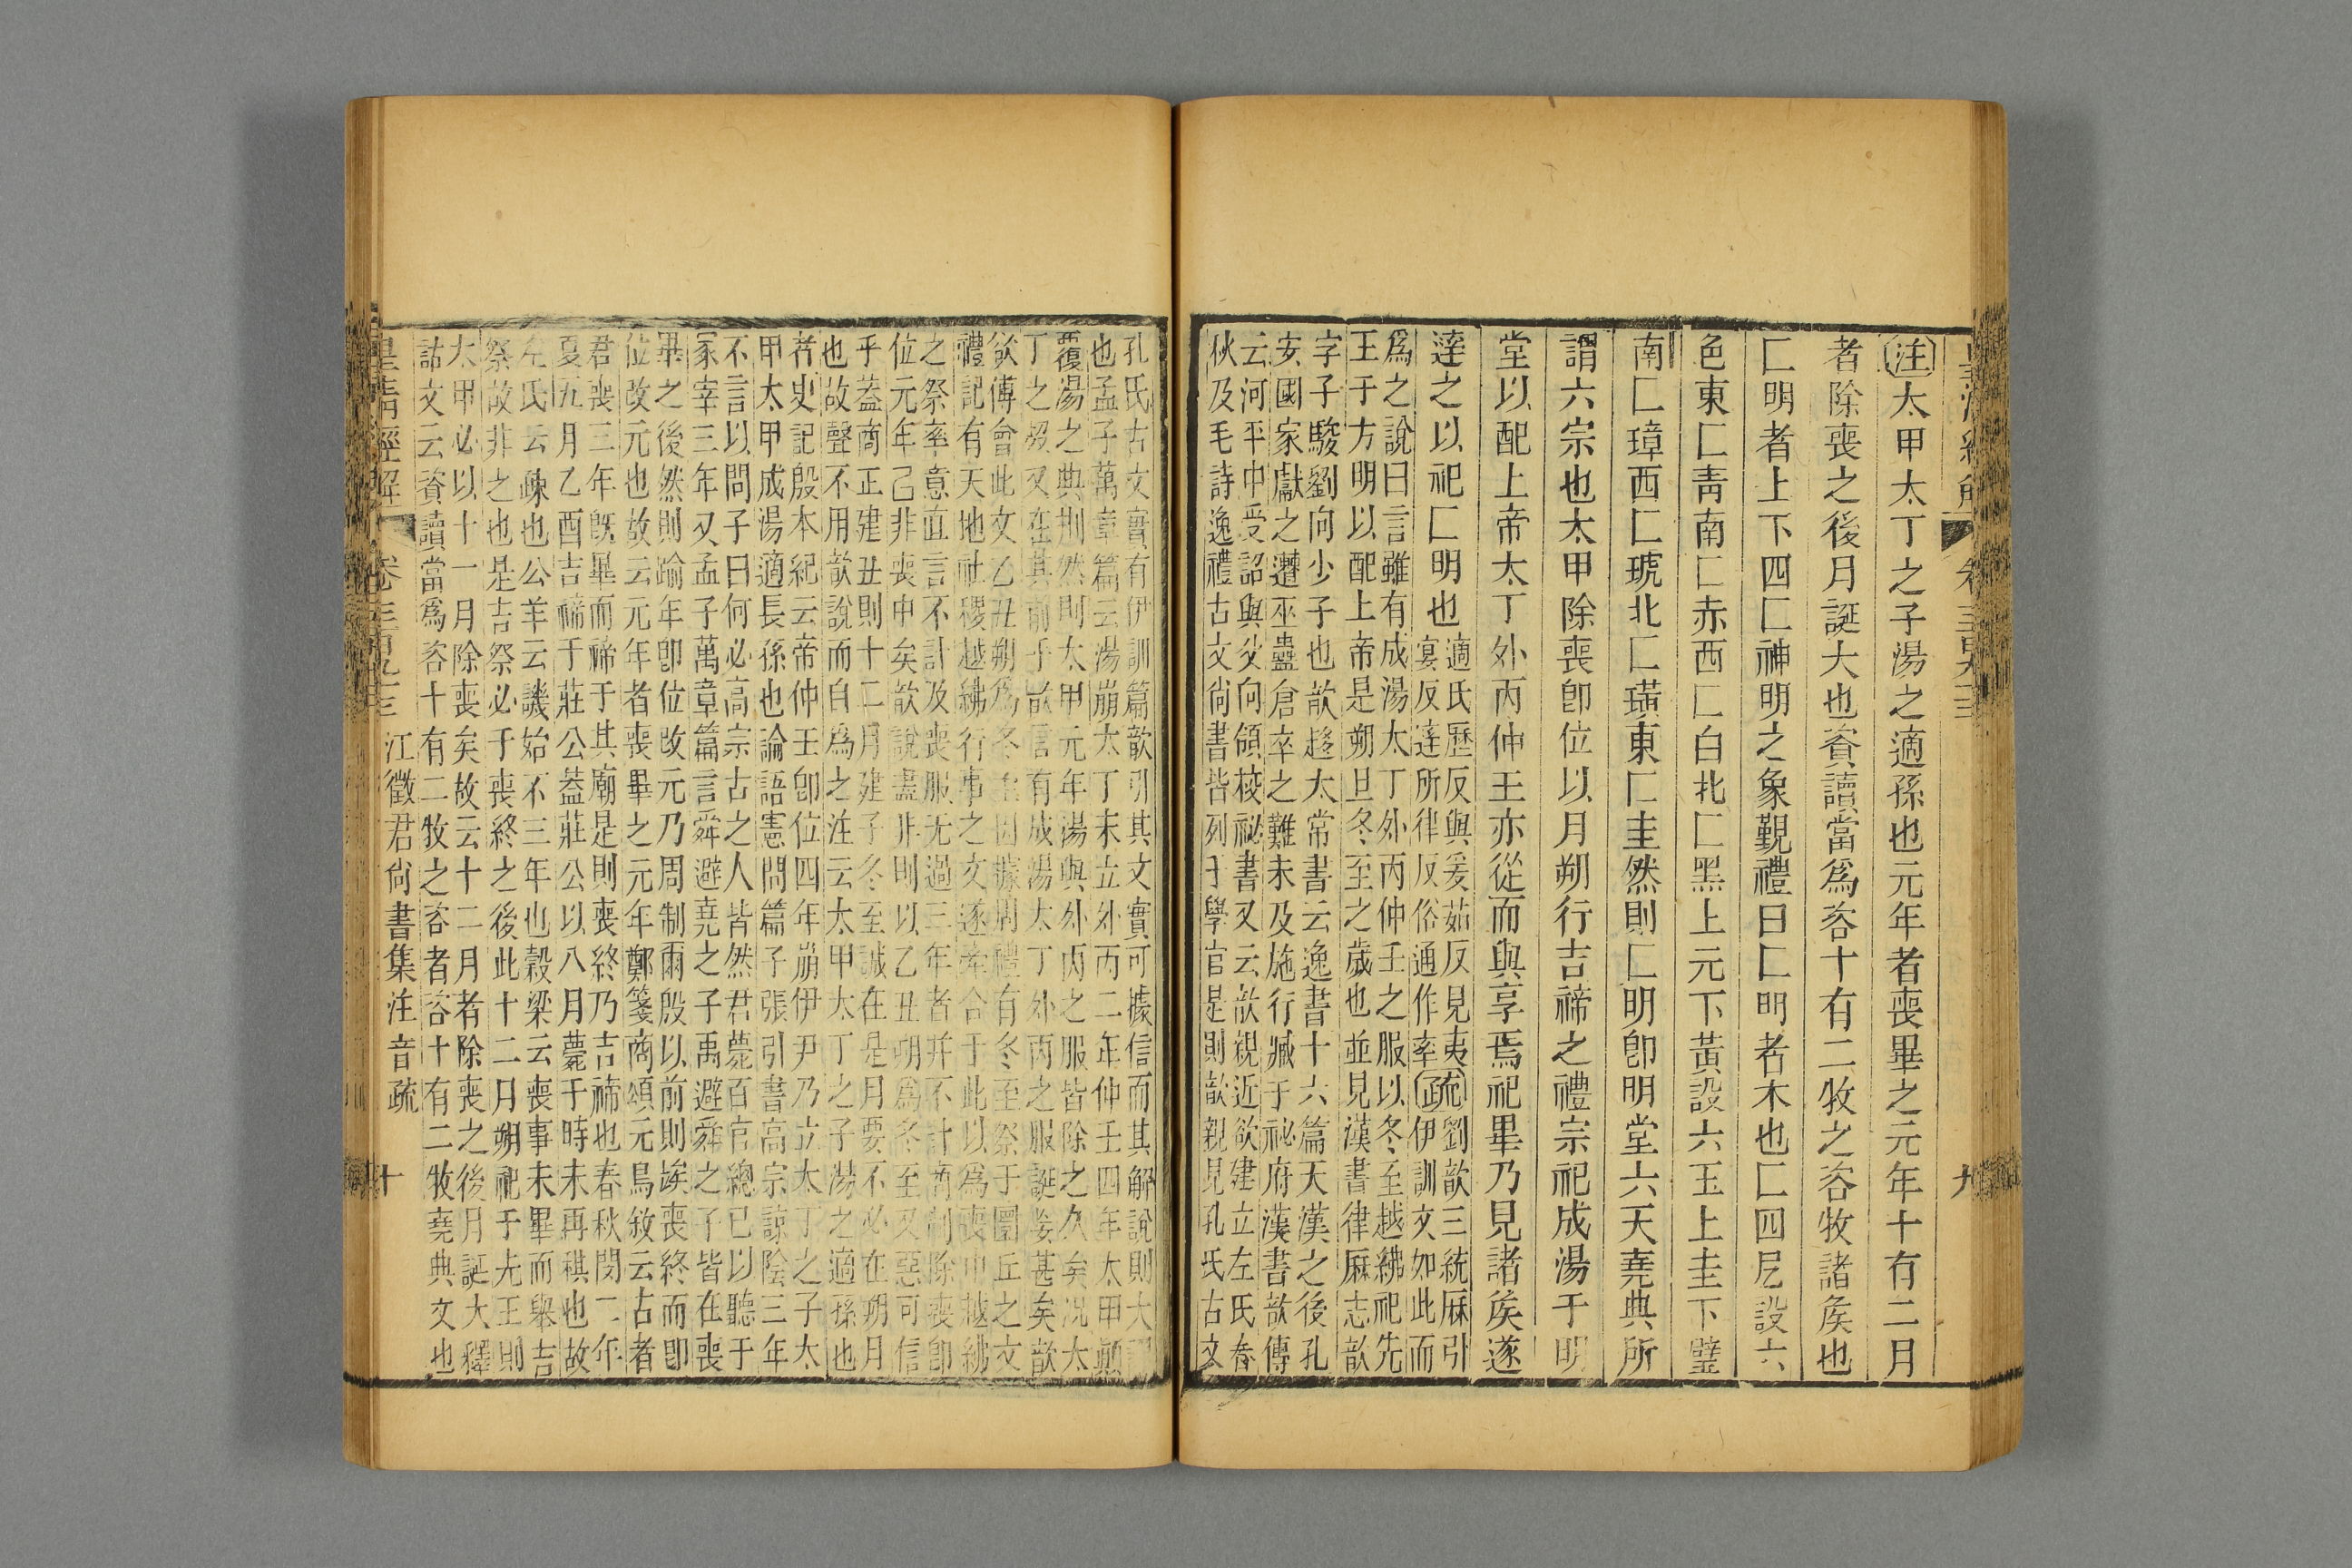 皇清經解 卷三百九十三 九
注太甲太丁之子湯之適孫也元年者喪畢之元年十有二月
者除喪之後月誕大也資讀當爲咨十有二牧之咨牧諸矦也
匚明者上下四匚神明之象覲禮曰匚明者木也匚四尺設六
色東匚靑南匚赤西匚白北匚黑上元下黃設六玉上圭下璧
南匚璋西匚琥北匚璜東匚圭然則匚明卽明堂六天堯典所
謂六宗也太甲除喪卽位以月朔行吉禘之禮宗祀成湯于明
堂以配上帝太丁外丙仲壬亦從而與享焉祀畢乃見諸矦遂
達之以祀匚明也
適氏歷反與爰茹反見夷
宴反達所律反俗通作率疏劉歆三統厤引
伊訓文如此而
爲之說曰言雖有成湯太丁外丙仲壬之服以冬至越紼祀先
王于方明以配上帝是朔旦冬至之歲也並見漢書律厤志歆
字子駿劉向少子也歆移太常書云逸書十六篇天漢之後孔
安國家獻之遭巫蠱倉卒之難未及施行臧于祕府漢書歆傳
云河平中受詔與父向領校祕書又云歆親近欲建立左氏春
秋及毛詩逸禮古文尙書皆列于學官是則歆親見孔氏古文
孔氏古文實有伊訓篇歆引其文實可據信而其解說則大
也孟子萬章篇云湯崩太丁未立外丙二年仲壬四年太甲顚
覆湯之典㓝然則太甲元年湯與外丙之服皆除之久矣況太
丁之歾又在其前乎歆言有成湯太丁外丙之服誕妄甚矣歆
欲傅會此文乙丑朔爲冬至因據周禮有冬至祭于圜丘之文
禮記有天地社稷越紼行事之文遂牽合于此以爲喪中越紼
之祭率意直言不計及喪服无過三年者并不計商制除喪卽
位元年己非喪中矣歆說盡非則以乙丑朔爲冬至又惡可信
乎蓋商正建丑則十二月建子冬至誠在是月要不必在朔月
也故聲不用歆說而自爲之注云太甲太丁之子湯之適孫也
者史記殷本紀云帝仲壬卽位四年崩伊尹乃立太丁之子太
甲太甲成湯適長孫也論語憲問篇子張引書高宗諒陰三年
不言以問子曰何必高宗古之人皆然君薨百官總已以聽于
冢宰三年又孟子萬章篇言舜避堯之子禹避舜之子皆在喪
畢之後然則踰年卽位改元乃周制爾殷以前則竢喪終而卽
位改元也故云元年者喪畢之元年鄭箋商頌元鳥敘云古者
君喪三年旣畢而禘于其廟是則喪終乃吉禘也春秋閔二年
夏五月乙酉吉禘于莊公蓋莊公以八月薨于時未再祺也故
左氏云疎也公羊云譏始不三年也穀梁云喪事未畢而舉吉
祭故非之也是吉祭必于喪終之後此十二月朔祀于先王則
太甲必以十一月除喪矣故云十二月者除喪之後月誕大釋
詁文云資讀當爲咨十有二牧之咨者咨十有二牧堯典文也
皇淸經解 卷三百九十三 江徵君尙書集注音疏 十